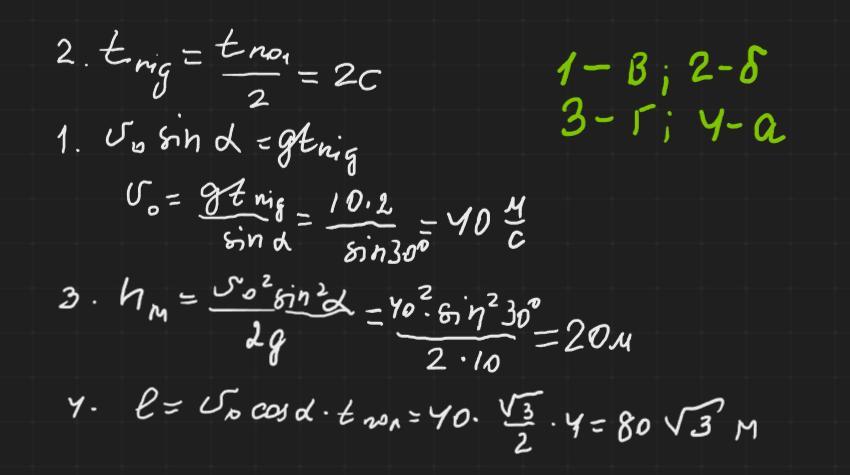 2. t під = t пол / 2 = 2с
1. v₀ sin α = gt під
v₀ = gt під / sin α = 10·2 / sin 30° = 40 м/с
3. hм = v₀² sin² α / 2g = 40² · sin² 30° / 2·10 = 20м
4. l = v₀ cos α · t пол = 40 · √3/2 · 4 = 80 √3 м
1 – в; 2 – б
3 – г; 4 – а